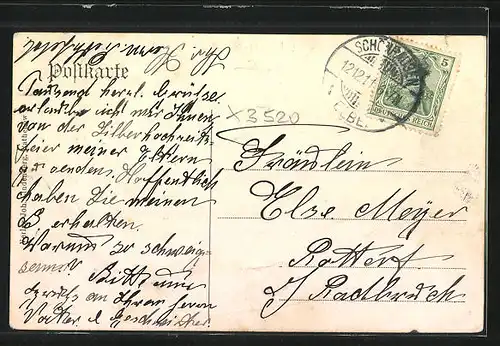 Postkarte
Tausend herzl. Grüsse
erlaube ich mir Ihnen
von der Silberhochzeits-
feier meiner Eltern
zu senden. Hoffentlich
haben Sie meinen
B. erhalten.
Warum so schweig-
sam?
Bitte um
Grüsse an Ihren Herrn
Vater & Geschwister.
X 3520
5
DEUTSCHES REICH
12.12.11
Fräulein
Else Meyer
Rottorf
b/ Radbruch